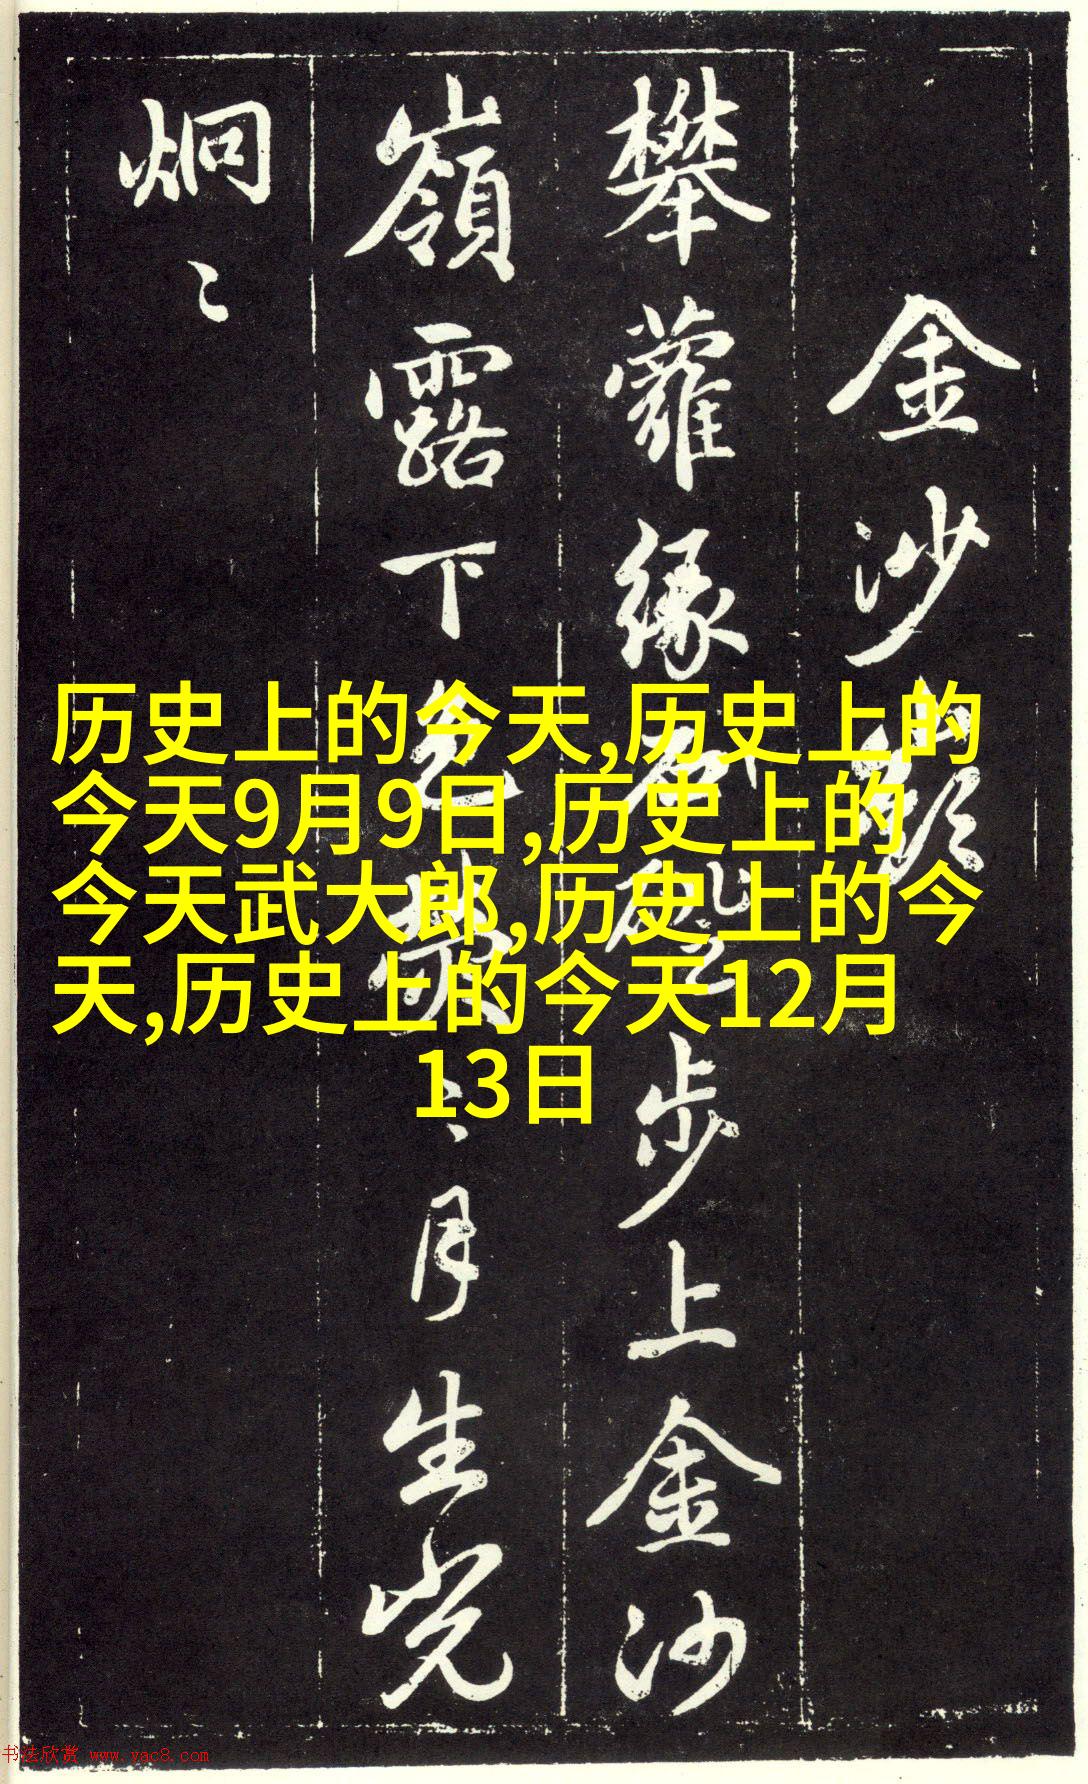 金沙嶺
攀蘿緣石磴步上金沙
嶺露下色熒〻月生光
炯〻
历史上的今天,历史上的
今天9月9日,历史上的
今天武大郎,历史上的今
天,历史上的今天12月
13日
书法欣赏 www.yac8.com